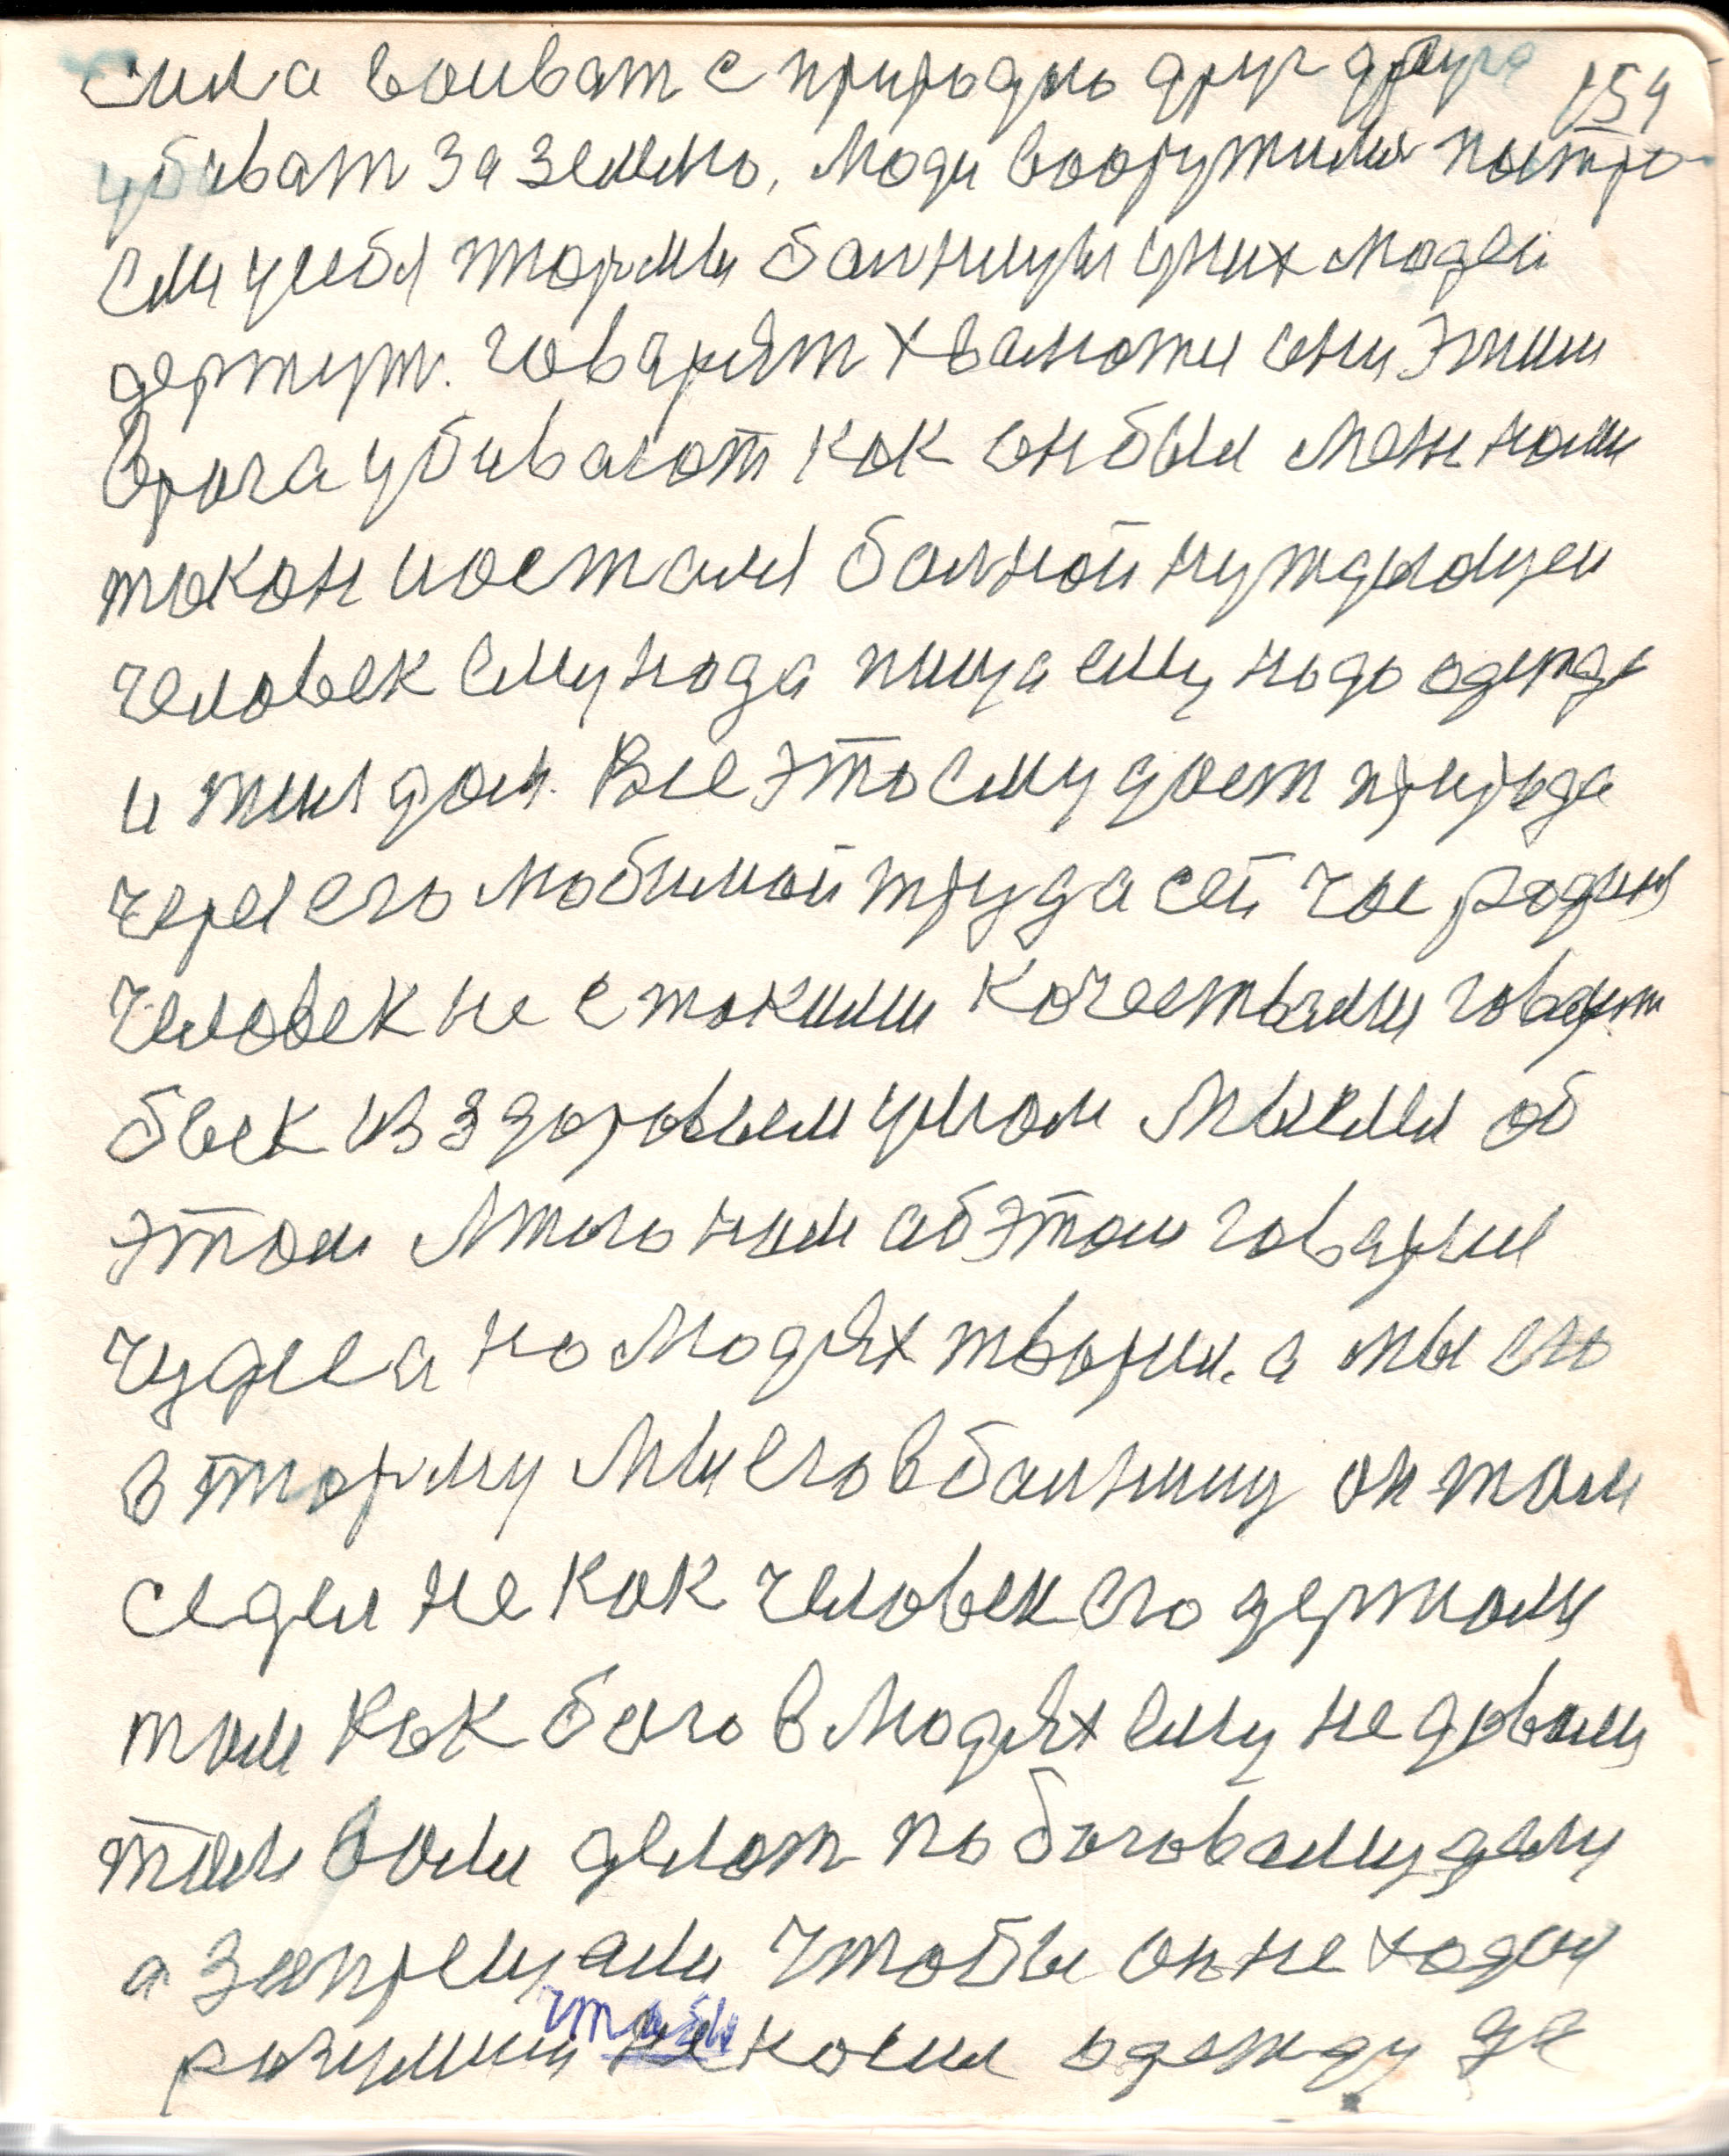 154
сила воиват с природою друг друга
убиват за землю, люди вооружились постро
или у себя тюрмы болницы у них людей
держут. говарят хваложи они этим
врага убивают как он был меж нами
такои и остался болной нуждающеи
человек ему нада пища ему надо одежда
и жил дом. Все это ему дает природа
через его любимой труд а сей час родился
человек не с такими качествами говарит
в здоровьем умом мысли об
этом много нам об этом говарил
чудеса на людях творил. а мы его
в тюрму мы его в болницу он там
седел не как человек его держали
там как бога в людях ему не довали
там воли делат по боговаму делу
а запрещали чтобы он не ходил
разумши чтобы носил одежду да